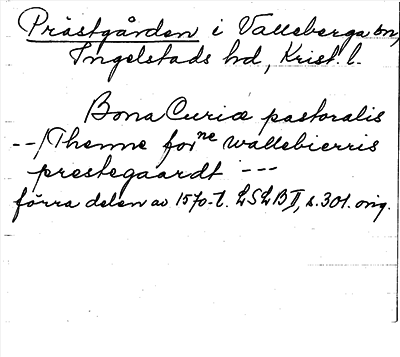 Prästgården i Valleberga sn,
Ingelstads hd, Krist. l.
Bona Curiæ pastoralis
--/Thenne for ne wallebierris
prestegaardt ---
förra delen av 1570-t. LSLB II, s. 301. orig.